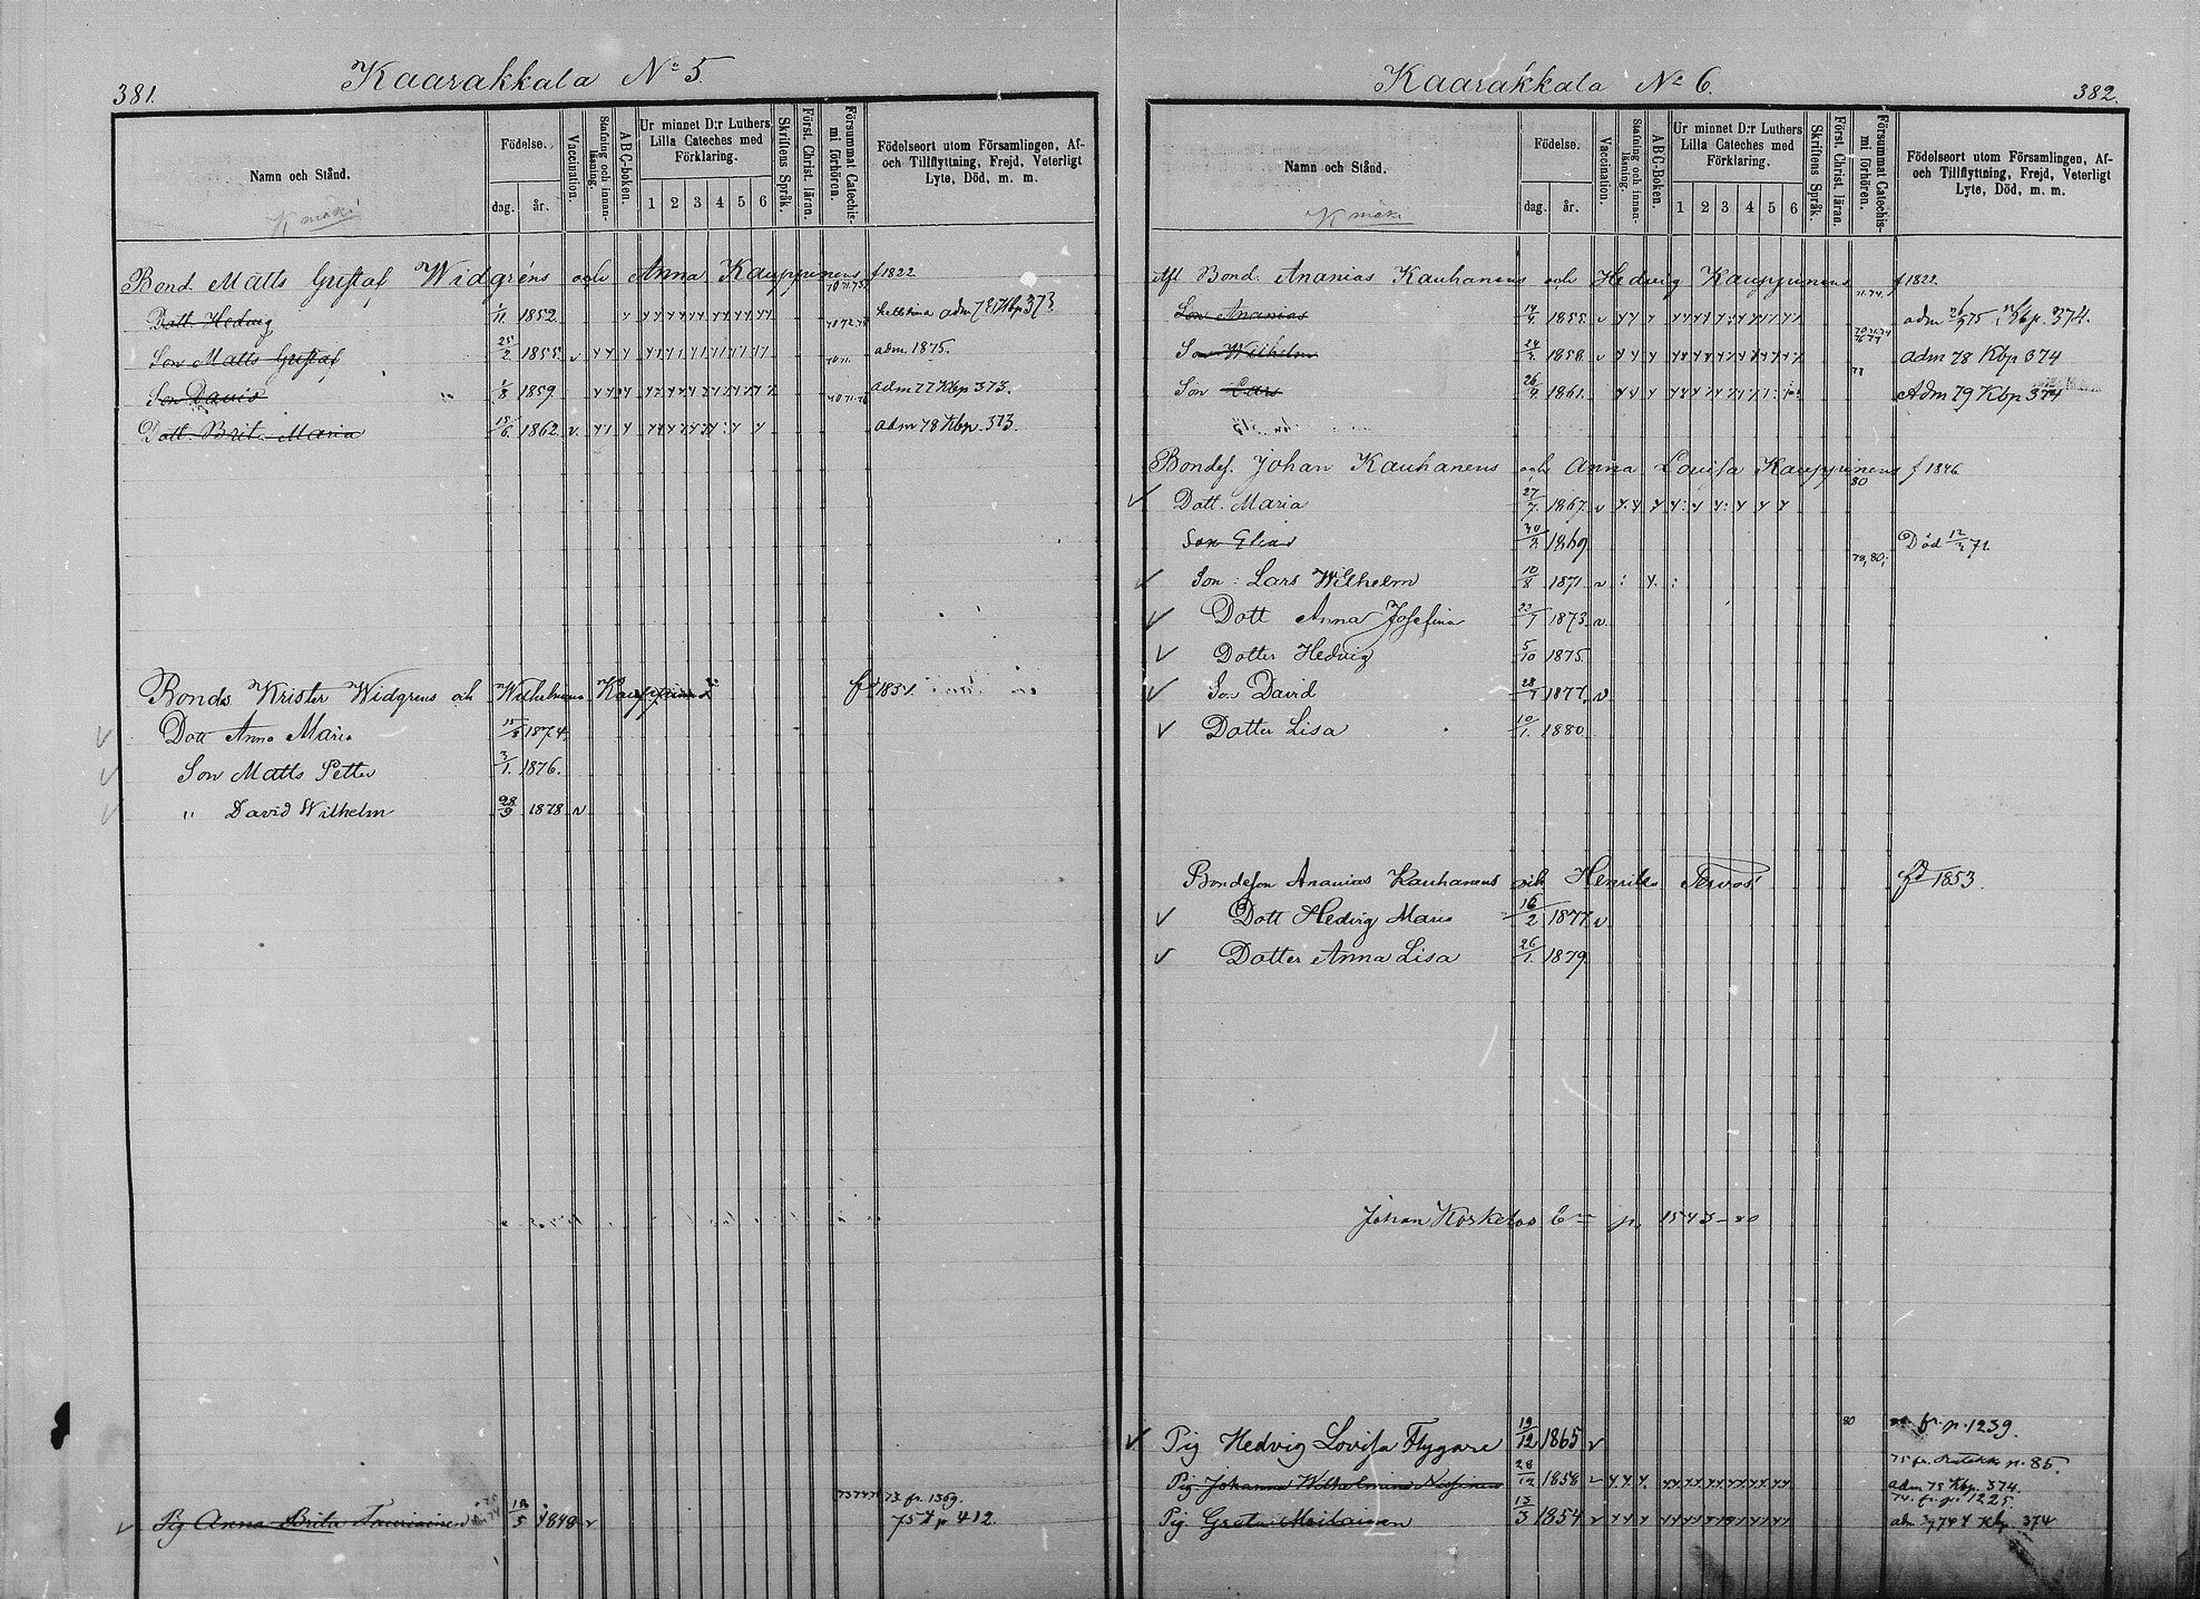 381.
Kaarakkala No 5.
Namn och Stånd.
Födelse.
dag.
år.
Vaccination.
Stafning och innanläsning.
ABC-boken.
Ur minnet D:r Luthers Lilla Cateches med Förklaring.
1 2 3 4 5 6
Skriftens Språk.
Först. Christ. läran.
Försummat Catechismi förhören.
Födelseort utom Församlingen, Af- och Tillflyttning, Frejd, Veterligt Lyte, Död, m. m.
K mäki
Bond. Matts Gustaf Widgréns och Anna Kauppinens f 1822
Dott. Hedvig 1/11 1852 adm 78 Kbp 373
Son Matts Gustaf 25/2 1855 adm. 1875.
Son David 1/8 1859 adm 77 Kbp 373.
Dott. Brita Maria 15/6 1862 adm 78 Kbp. 373.
Bonds Krister Widgrens och Wilhelmina Kauppinens
Dott Anna Maria 15/3 1874.
Son Matts Petter 3/1 1876.
" David Wilhelm 28/9 1878
73 fr. 1369.
Pig Anna Brita 1848 75 t p 412.
382.
Kaarakkala No 6.
Namn och Stånd.
Födelse.
dag.
år.
Vaccination.
Stafning och innanläsning.
ABC-Boken.
Ur minnet D:r Luthers Lilla Cateches med Förklaring.
1 2 3 4 5 6
Skriftens Språk.
Först. Christ. läran.
Försummat Catechismi förhören.
Födelseort utom Församlingen, Af- och Tillflyttning, Frejd, Veterligt Lyte, Död, m. m.
K mäki
Afl Bond. Ananias Kauhanens och Hedvig Kauppinens f 1822.
Son Ananias 1855 adm Kbp. 374.
Son Wilhelm 1858 adm 78 Kbp 374
Son Lars 1861. Adm 79 Kbp 374
Bondes. Johan Kauhanens och Anna Lovisa Kauppinens f 1846
80
Dott. Maria 27/7 1867.
Son Elias 1869 Död 12/3 71.
79, 80;
Son: Lars Wilhelm 10/8 1871
Dott Anna Josefina 1873
Dotter Hedvig 5/10 1875
Son David 28/1 1877
Dotter Lisa 10/1 1880
Bondeson Ananias Kauhanens och Henrika Tervos fd 1853.
Dott Hedvig Maria 16/2 1877
Dotter Anna Lisa 26/1 1879
Johan p. 1543
Pig Hedvig Lovisa Flygare 19/12 1865 80 fr. p. 1239.
75 fr. p. 85.
Pig Johanna Wilhelmina 28/12 1858 adm 75 Kbp. 374.
74. fr. p. 1225.
Pig. Greta Moilainen 13/3 1854 adm Kbp. 374